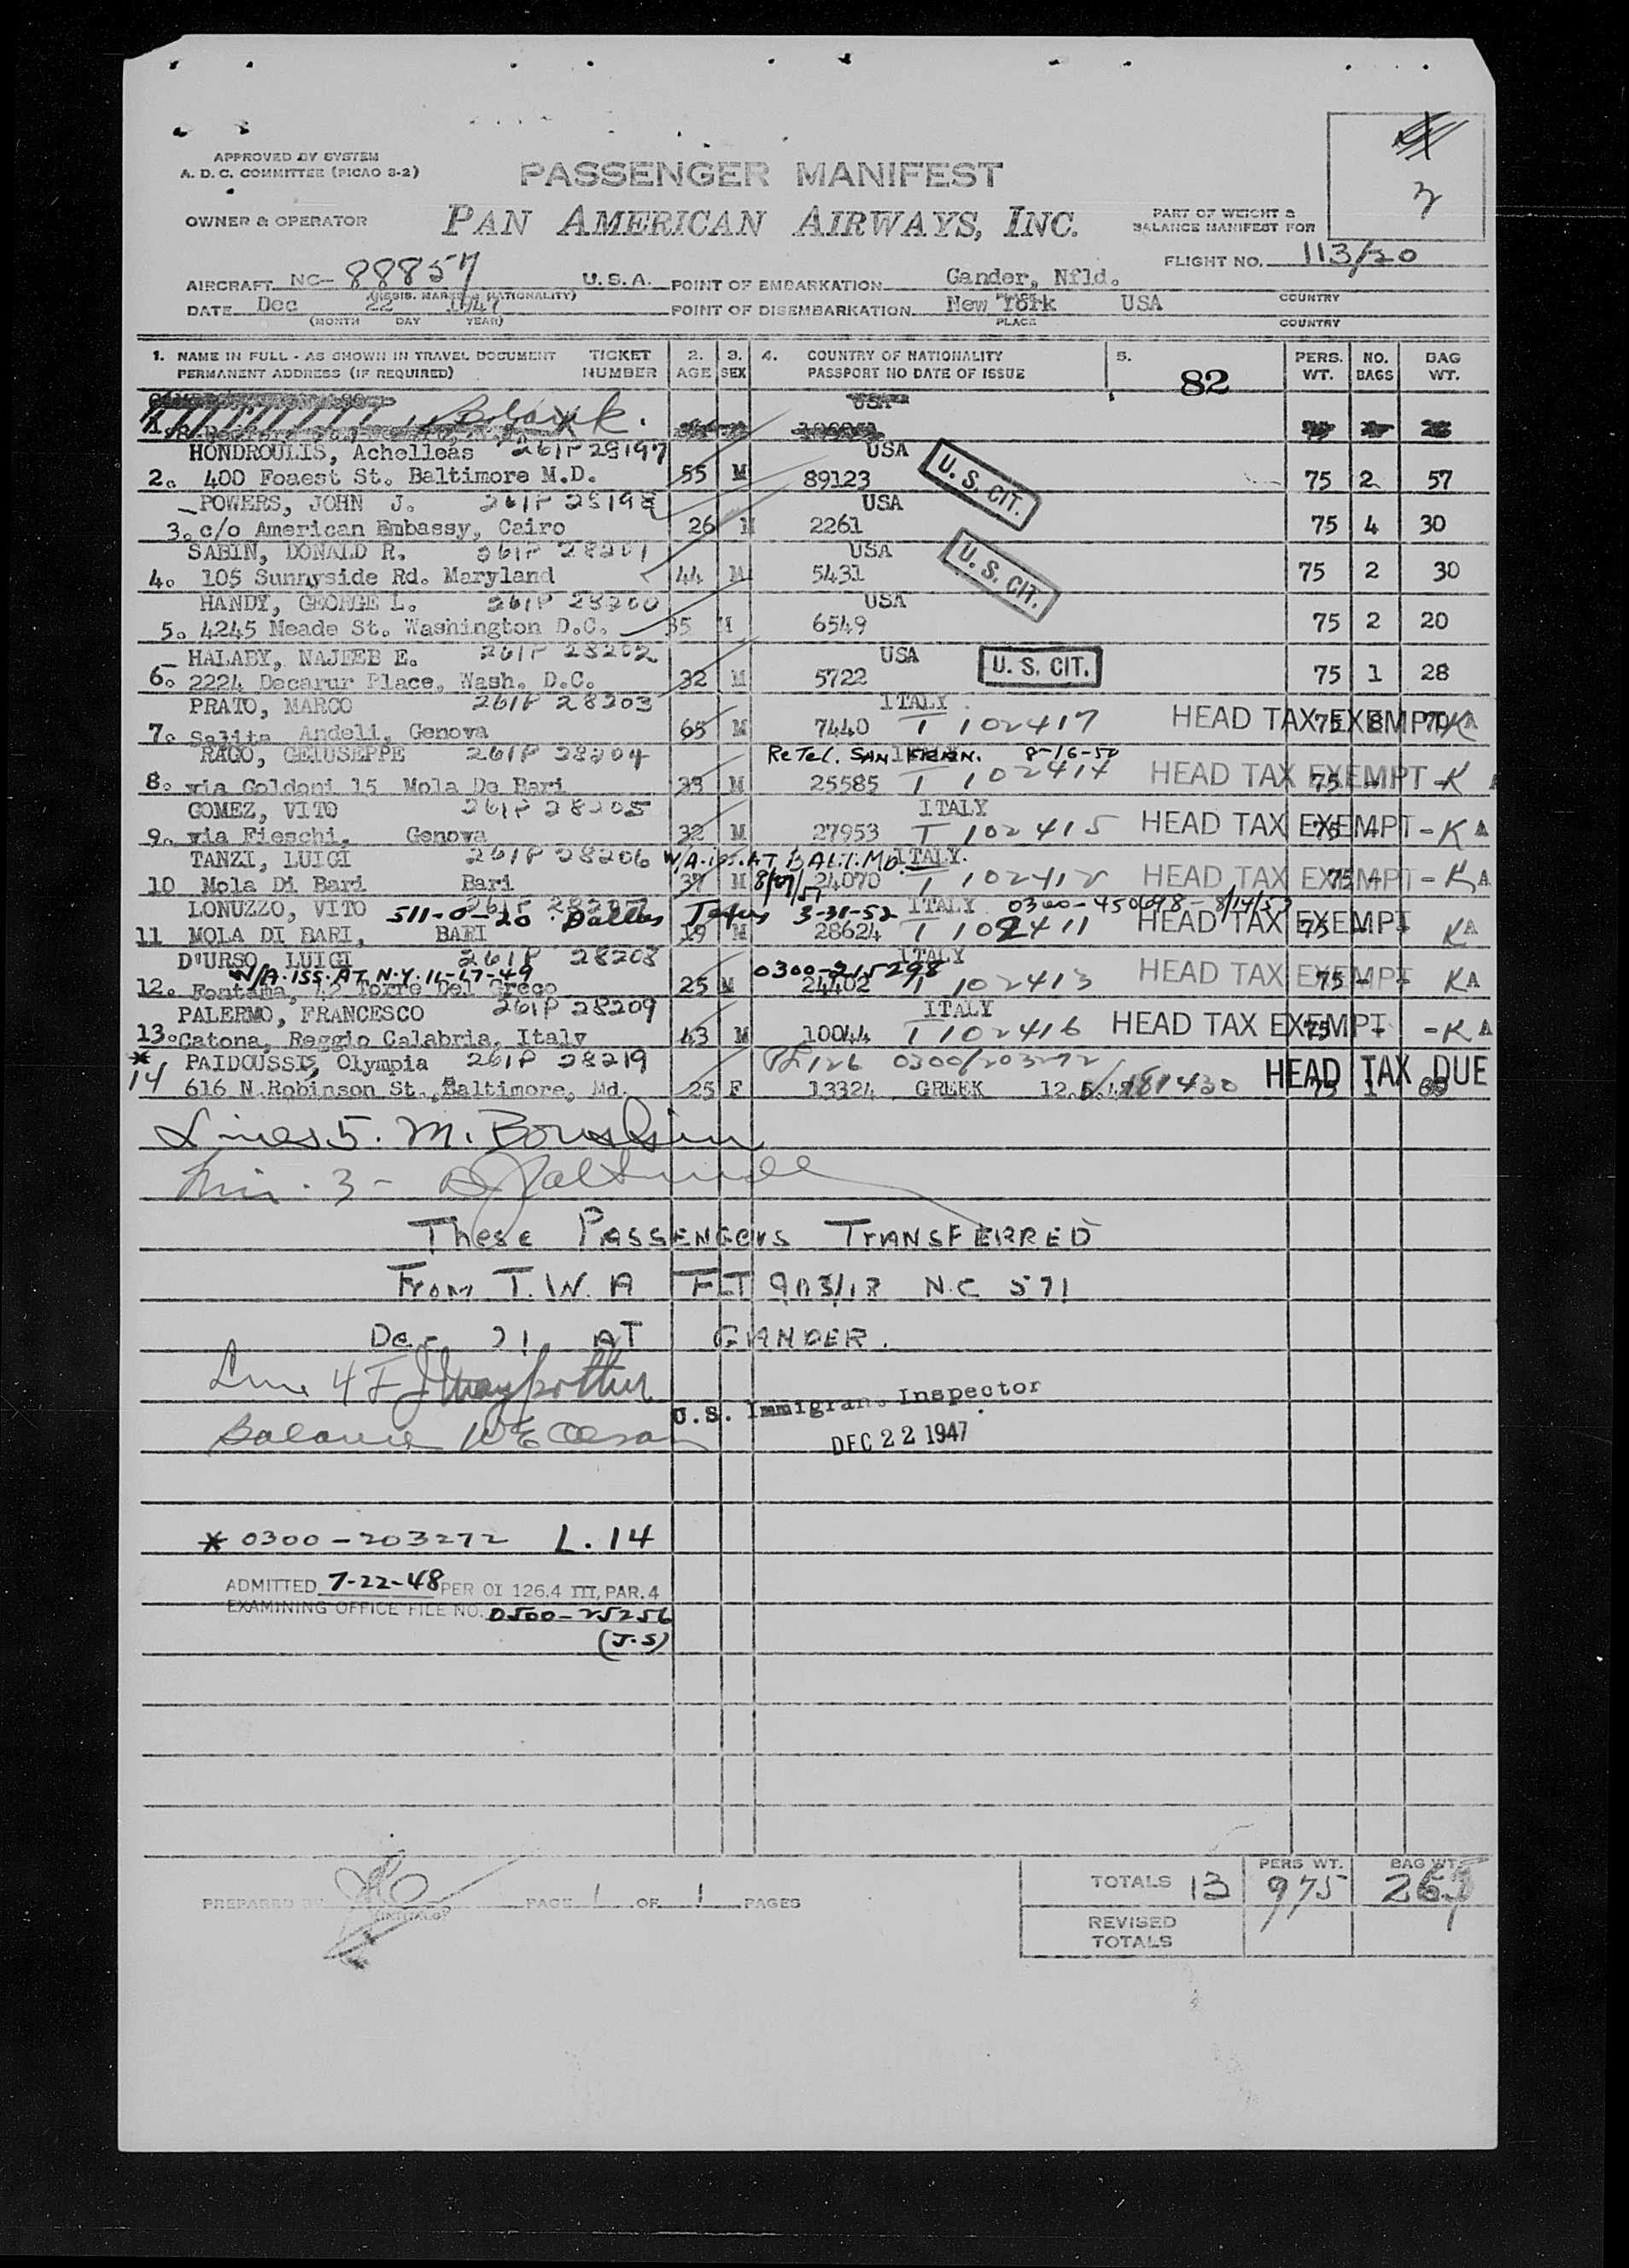 APPROVED BY SYSTEM
A. D. C. COMMITTEE (PICAO 3-2)
PASSENGER MANIFEST
3
OWNER & OPERATOR
PAN AMERICAN AIRWAYS, INC.
PART OF WEIGHT &
BALANCE MANIFEST FOR
FLIGHT NO. 113/20
AIRCRAFT NC- 88857 U.S.A. POINT OF EMBARKATION Gander, Nfld.
(REGIS. MARKS & NATIONALITY) PLACE COUNTRY
DATE Dec 22 1947 POINT OF DISEMBARKATION New York USA
(MONTH DAY YEAR) PLACE COUNTRY
1. NAME IN FULL - AS SHOWN IN TRAVEL DOCUMENT TICKET 2. 3. 4. COUNTRY OF NATIONALITY 5. PERS. NO. BAG
PERMANENT ADDRESS (IF REQUIRED) NUMBER AGE SEX PASSPORT NO DATE OF ISSUE 82 WT. BAGS WT.
Blank.
HONDROULIS, Achelleas 261P 28197 USA
2. 400 Foaest St. Baltimore M.D. 55 M 89123 U. S. CIT. 75 2 57
POWERS, JOHN J. 261P 28198 USA
3. c/o American Embassy, Cairo 26 M 2261 75 4 30
SABIN, DONALD R. 261P 28201 USA
4. 105 Sunnyside Rd. Maryland 44 M 5431 U. S. CIT. 75 2 30
HANDY, GEORGE L. 261P 28200 USA
5. 4245 Meade St. Washington D.C. 35 M 6549 75 2 20
HALABY, NAJEEB E. 261P 28202 USA
6. 2224 Decarur Place, Wash. D.C. 32 M 5722 U. S. CIT. 75 1 28
PRATO, MARCO 261P 28203 ITALY
7. Salita Andeli, Genova 65 M 7440 T 102417 HEAD TAX EXEMPT KA
RAGO, GEIUSEPPE 261P 28204 Re Tel. SAN FRAN. 8-16-50
8. via Goldoni 15 Mola De Bari 33 M 25585 T 102414 HEAD TAX EXEMPT 75 - K A
GOMEZ, VITO 261P 28205 ITALY
9. via Fieschi, Genova 32 M 27953 T 102415 HEAD TAX EXEMPT 75 - K A
TANZI, LUIGI 261P 28206 W/A. iss. AT BALT. MD. ITALY.
10 Mola Di Bari Bari 37 M 24070 T 102412 HEAD TAX EXEMPT 75 - K A
LONUZZO, VITO 511-0-20 Dallas Texas 3-31-52 ITALY
11 MOLA DI BARI, BARI 19 M 28624 T 102411 HEAD TAX EXEMPT 75 KA
D'URSO, LUIGI 261P 28208 ITALY
W/A. ISS. AT N.Y. 11-17-49 0300-215298
12. Fontana, 42 Torre Del Greco 25 M 24402 T 102413 HEAD TAX EXEMPT 75 KA
PALERMO, FRANCESCO 261P 28209 ITALY
13. Catona, Reggio Calabria, Italy 43 M 10044 T 102416 HEAD TAX EXEMPT 75 - K A
* PAIDOUSSIS, Olympia 261P 28219 0300/203272
14 616 N. Robinson St., Baltimore, Md. 25 F 13324 GREEK HEAD TAX DUE 75 1
Lines 5. M.
3 -
These PASSENGERS TRANSFERRED
From T.W.A FLT 903/18 N.C 571
Dec 21 AT GANDER.
Line 4
Balance
U.S. Immigrant Inspector
DEC 22 1947
* 0300-203272 L. 14
ADMITTED 7-22-48 PER OI 126.4 III, PAR. 4
EXAMINING OFFICE FILE NO. 0500-25256
(J.S)
PREPARED BY (INITIALS) PAGE 1 OF 1 PAGES
PERS WT. BAG WT.
TOTALS 13 975
REVISED
TOTALS